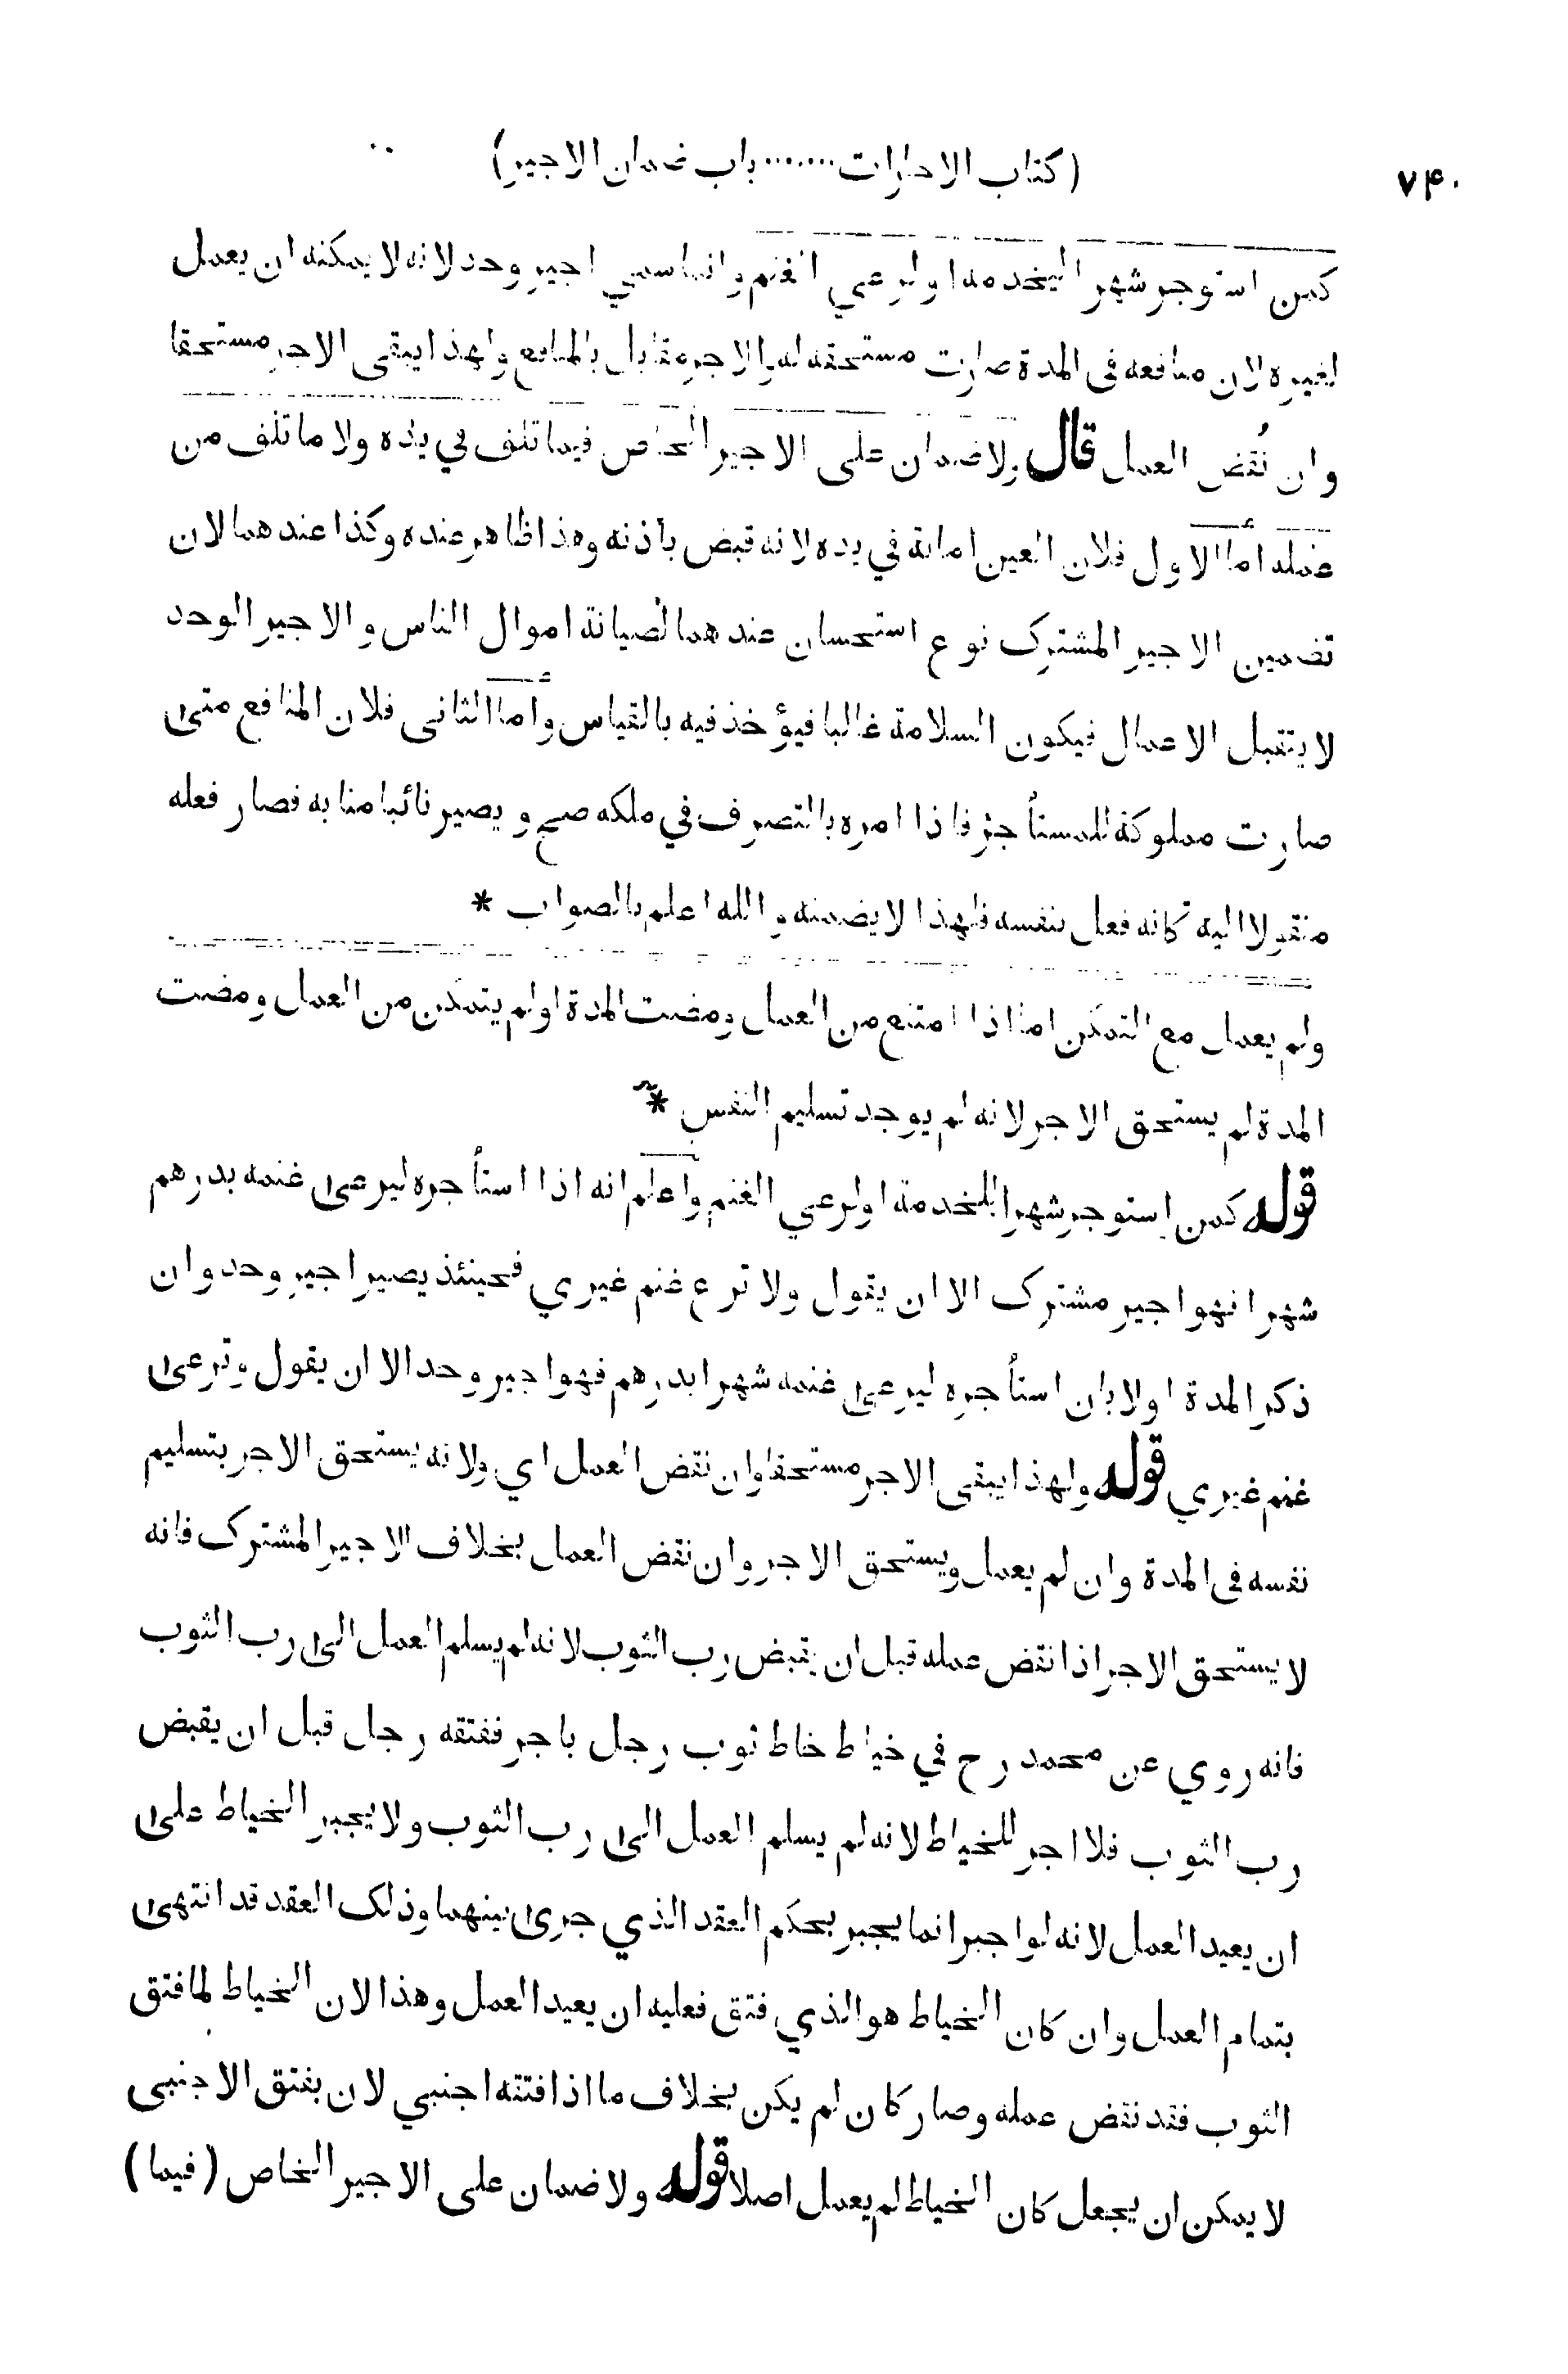 ٧۴٠
(كتاب الاجارات ....... باب ضمان الاجير)
كمن استوجر شهرا للخدمة او لرعي الغنم وانما سمي اجير وحد لانه لا يمكنه ان يعمل
لغيره لان منافعه في المدة صارت مستحقة له والاجر مقابل بالمنافع ولهذا يبقى الاجر مستحقا
وان نُقض العمل قال ولا ضمان على الاجير الخاص فيما تلف في يده ولا ما تلف من
عمله أما الاول فلان العين امانة في يده لانه قبض باذنه وهذا ظاهر عنده وكذا عندهما لان
تضمين الاجير المشترك نوع استحسان عندهما لصيانة اموال الناس والاجير الوحد
لا يتقبل الاعمال فيكون السلامة غالبا فيؤخذ فيه بالقياس وأما الثاني فلان المنافع متى
صارت مملوكة للمستأجر فاذا امره بالتصرف في ملكه صح ويصير نائبا منابه فصار فعله
منقولا اليه كانه فعل بنفسه فلهذا لا يضمنه والله اعلم بالصواب *
ولم يعمل مع التمكن اما اذا امتنع من العمل ومضت المدة او لم يتمكن من العمل ومضت
المدة لم يستحق الاجر لانه لم يوجد تسليم النفس *
قوله كمن استوجر شهرا للخدمة او لرعي الغنم واعلم انه اذا استأجره ليرعى غنمه بدرهم
شهرا فهو اجير مشترك الا ان يقول ولا ترع غنم غيري فحينئذ يصير اجير وحد وان
ذكر المدة اولا بان استأجره ليرعى غنمه شهرا بدرهم فهو اجير وحد الا ان يقول وترعى
غنم غيري قوله ولهذا يبقى الاجر مستحقا وان نقض العمل اي ولانه يستحق الاجر بتسليم
نفسه في المدة وان لم يعمل ويستحق الاجر وان نقض العمل بخلاف الاجير المشترك فانه
لا يستحق الاجر اذا نقض عمله قبل ان يقبض رب الثوب لانه لم يسلم العمل الى رب الثوب
فانه روي عن محمد رح في خياط خاط ثوب رجل باجر ففتقه رجل قبل ان يقبض
رب الثوب فلا اجر للخياط لانه لم يسلم العمل الى رب الثوب ولا يجبر الخياط على
ان يعيد العمل لانه لو اجبر انما يجبر بحكم العقد الذي جرى بينهما وذلك العقد قد انتهى
بتمام العمل وان كان الخياط هو الذي فتق فعليه ان يعيد العمل وهذا لان الخياط لما فتق
الثوب فقد نقض عمله وصار كان لم يكن بخلاف ما اذا فتقه اجنبي لان بفتق الاجنبي
لا يمكن ان يجعل كان الخياط لم يعمل اصلا قوله ولا ضمان على الاجير الخاص (فيما)